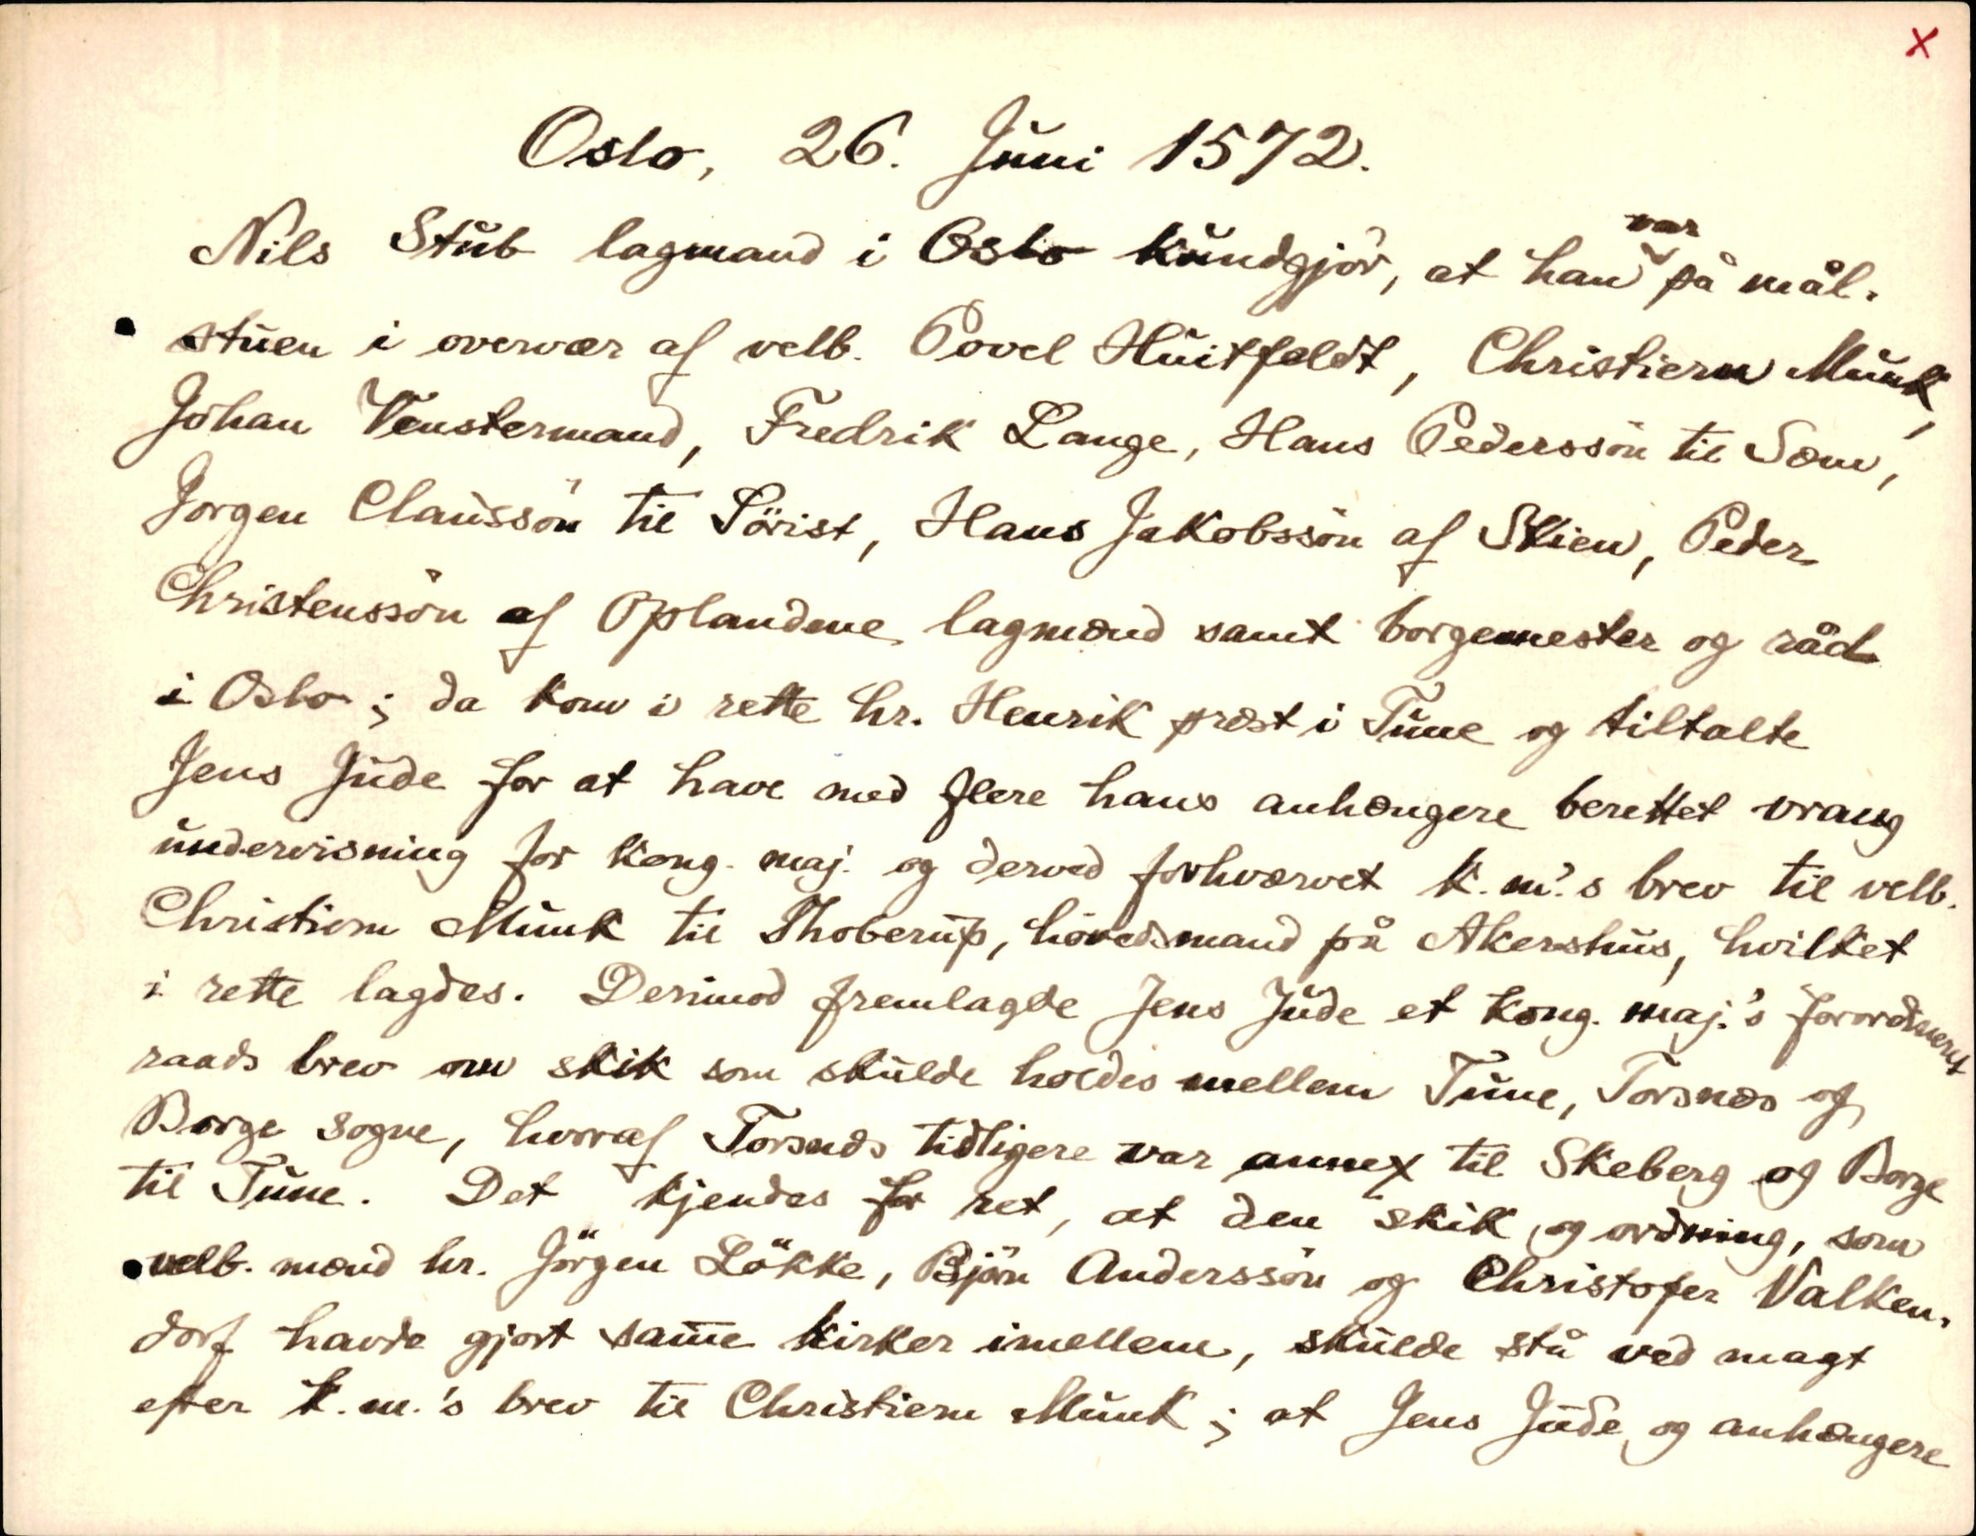 x
Oslo, 26. Juni 1572.
Nils Stub lagmand i Oslo kundgjör, at han var på mål-
stuen i overvær af velb. Povel Huitfeldt, Christiern Munk,
Johan Venstermand, Fredrik Lange, Hans Pederssön til Sæm,
Jörgen Claussön til Sörist, Hans Jakobssön af Skien, Peder
Christenssön af Oplandene lagmænd samt borgemester og råd
i Oslo; da kom i rette hr. Henrik præst i Tune og tiltalte
Jens Jude for at have med flere hans anhængere berettet vrang
undervisning for kong. maj. og derved forhværvet k. m.'s brev til velb.
Christiern Munk til Thoberup, hövedsmand på Akershus, hvilket
i rette lagdes. Derimod fremlagde Jens Jude et kong. maj.'s forordineret
raads brev om skik som skulde holdes mellem Tune, Torsnæs og
Borge sogne, hvoraf Torsnæs tidligere var annex til Skeberg og Borge
til Tune. Det kjendes for ret, at den skik og ordning, som
velb. mænd hr. Jörgen Lökke, Björn Anderssön og Christofer Valken-
dorf havde gjort samme kirker imellem, skulde stå ved magt
efter k. m.'s brev til Christiern Munk; at Jens Jude og anhængere